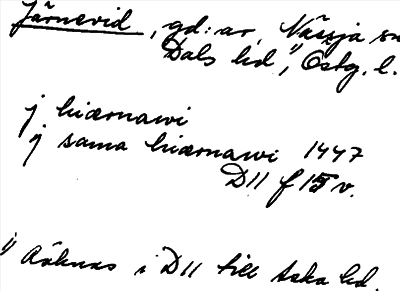 Järnevid, gd: ar, Näsja sn
Dals hd¹⁾, Östg. l.
j hiærnawi
j sama hiærnawi 1447
D11 f 15 v.
¹⁾ Räknas i D11 till Aska hd.